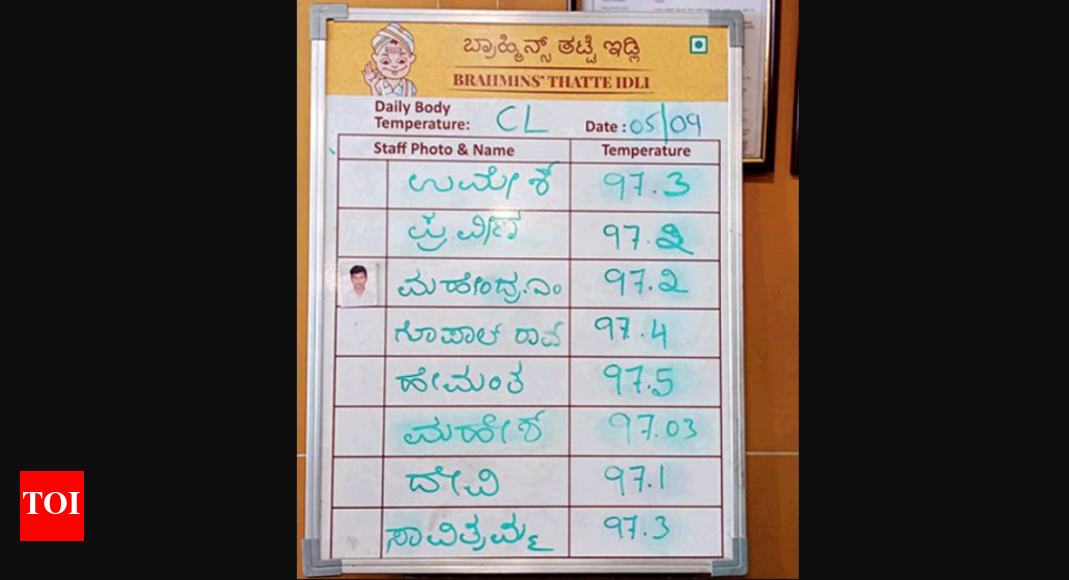 ಬ್ರಾಹ್ಮಿನ್ಸ್ ತಟ್ಟೆ ಇಡ್ಲಿ
BRAHMINS' THATTE IDLI
Daily Body
Temperature: CL Date : 05/09
Staff Photo & Name Temperature
ಉಮೇಶ್ 97.3
ಪ್ರವೀಣ 97.2
ಮಹೇಂದ್ರ.ಎಂ 97.2
ಗೋಪಾಲ್ ರಾವ್ 97.4
ಹೇಮಂತ 97.5
ಮಹೇಶ್ 97.03
ದೇವಿ 97.1
ಸಾವಿತ್ರಮ್ಮ 97.3
TOI